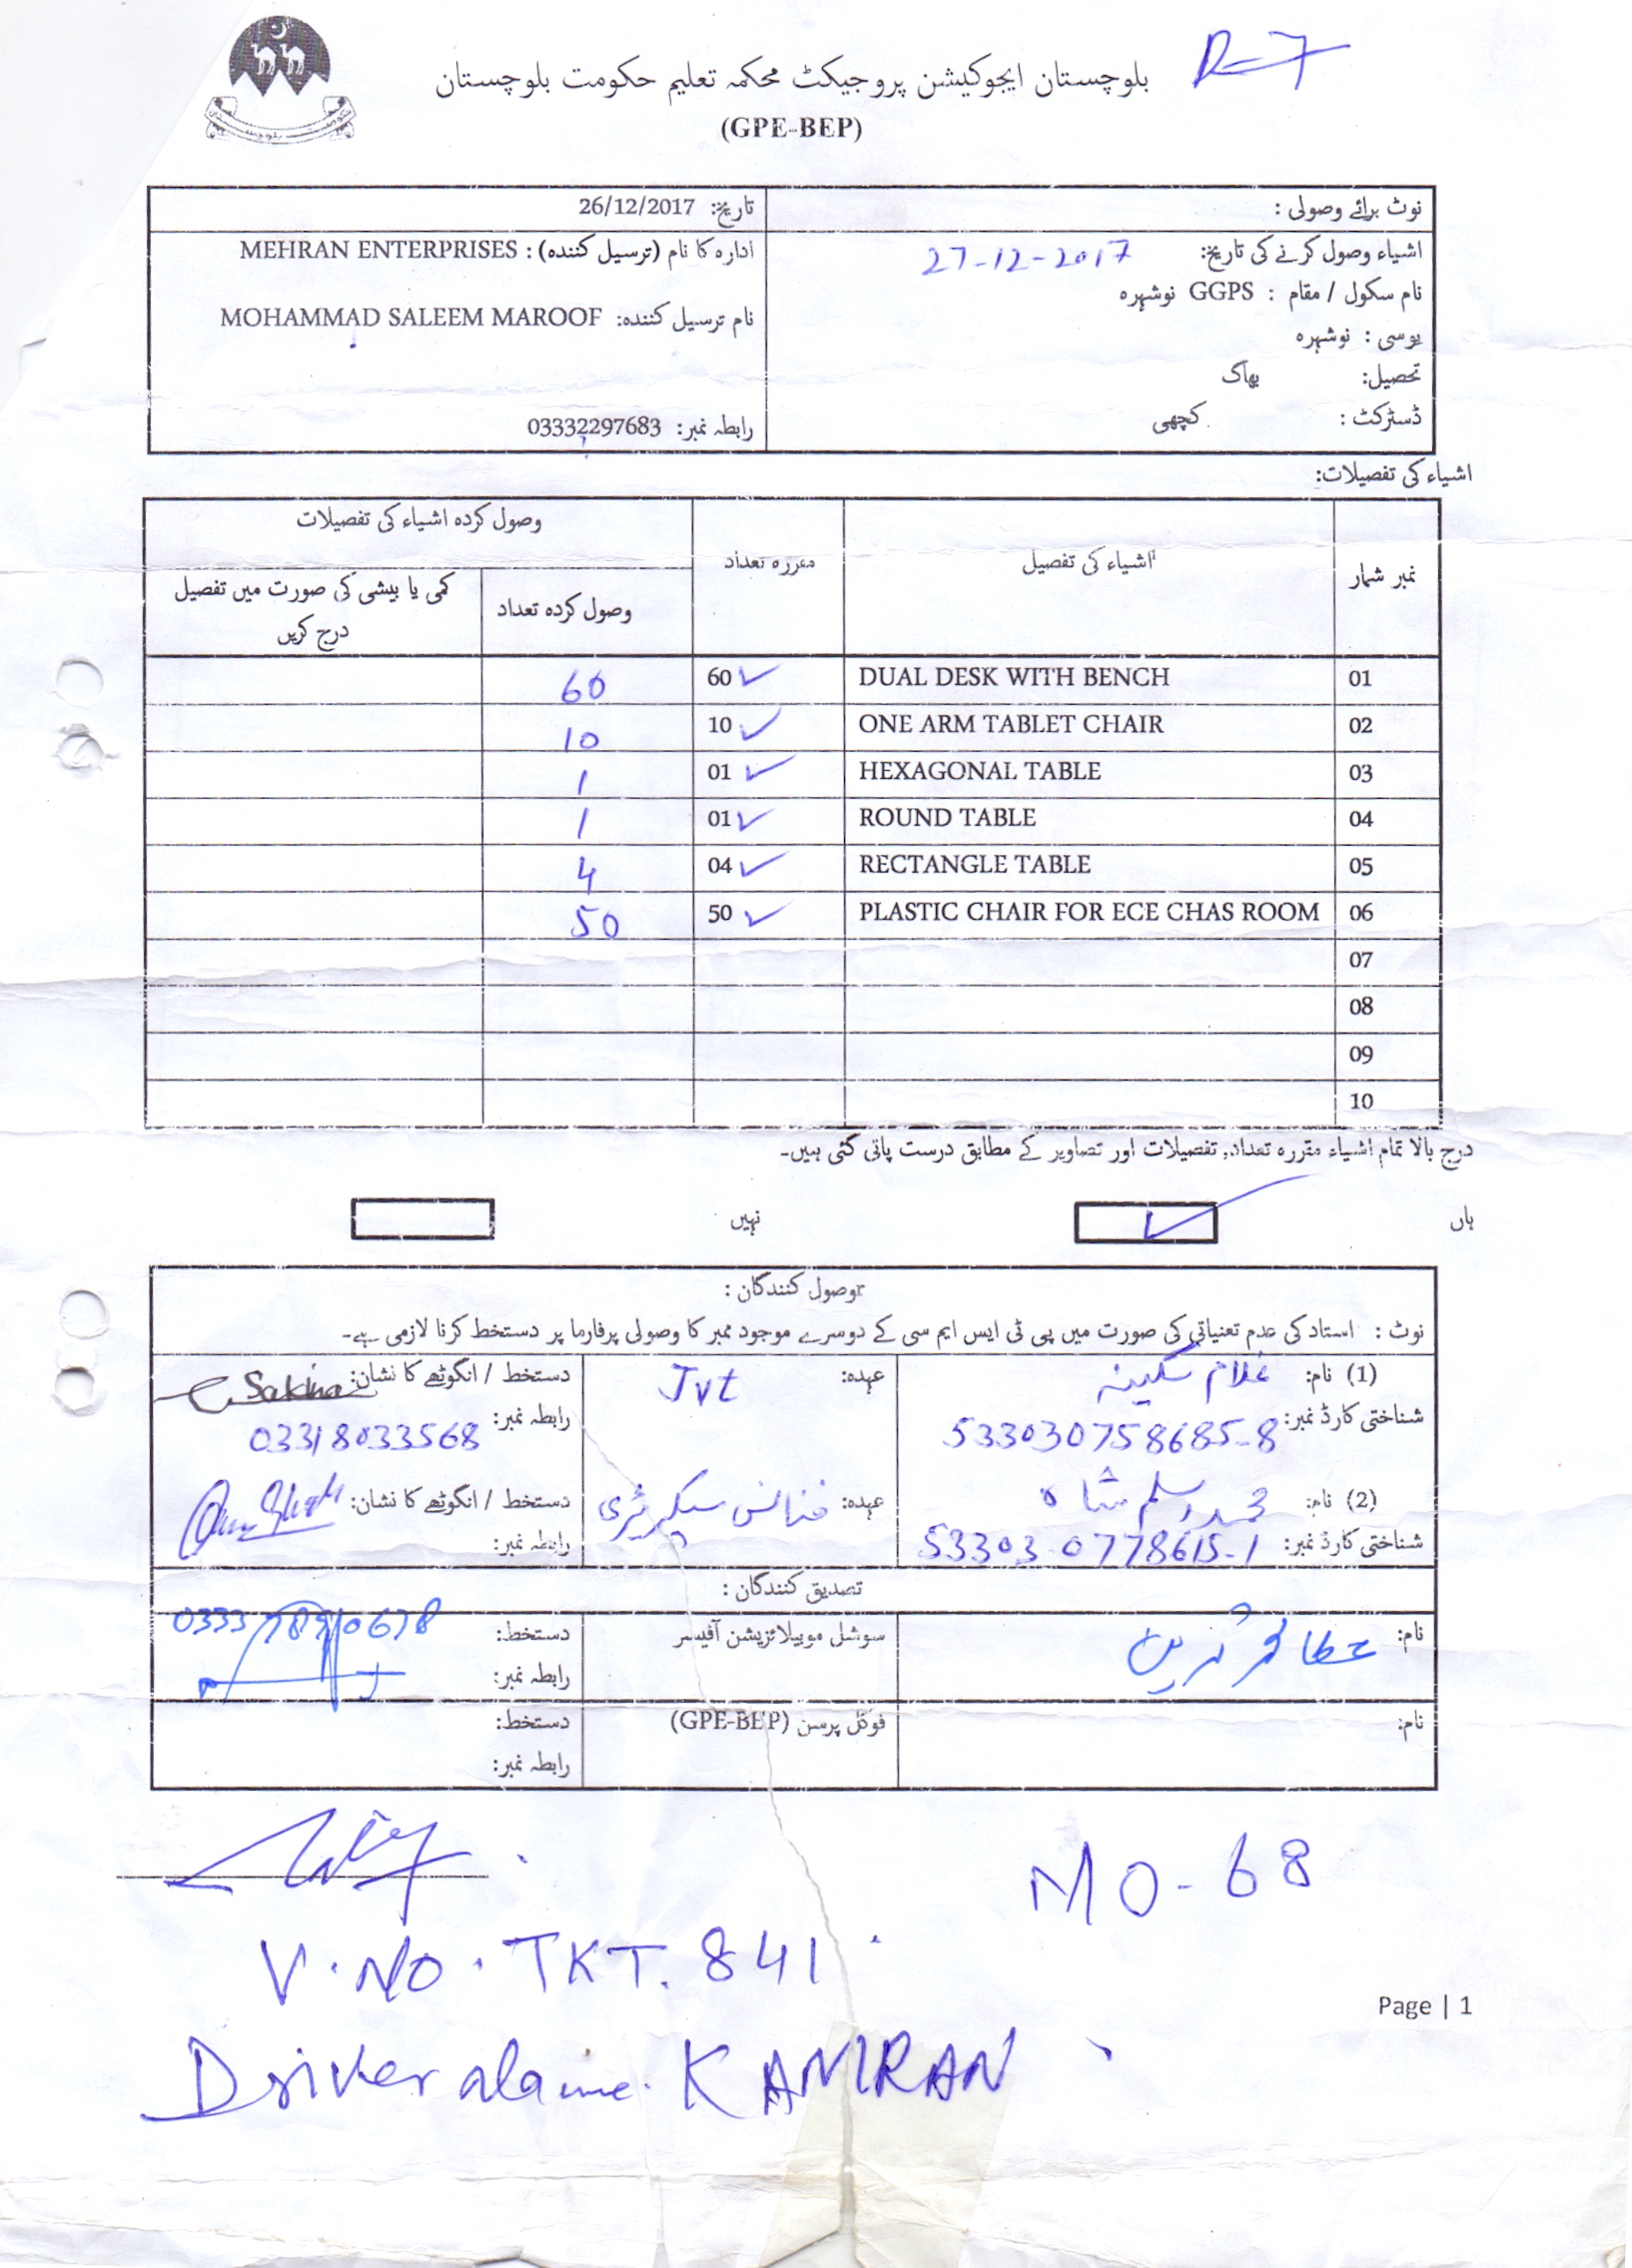 R-7
بلوچستان ایجوکیشن پروجیکٹ محکمہ تعلیم حکومت بلوچستان
(GPE-BEP)
نوٹ برائے وصولی :
تاریخ: 26/12/2017
اشیاء وصول کرنے کی تاریخ: 27-12-2017
ادارہ کا نام (ترسیل کنندہ) : MEHRAN ENTERPRISES
نام سکول / مقام : GGPS نوشہرہ
نام ترسیل کنندہ: MOHAMMAD SALEEM MAROOF
یوسی : نوشہرہ
تحصیل: بھاگ
ڈسٹرکٹ : کچھی
رابطہ نمبر: 03332297683
اشیاء کی تفصیلات:
نمبر شمار اشیاء کی تفصیل مقررہ تعداد وصول کردہ اشیاء کی تفصیلات
وصول کردہ تعداد کمی یا بیشی کی صورت میں تفصیل
درج کریں
01 DUAL DESK WITH BENCH 60 60
02 ONE ARM TABLET CHAIR 10 10
03 HEXAGONAL TABLE 01 1
04 ROUND TABLE 01 1
05 RECTANGLE TABLE 04 4
06 PLASTIC CHAIR FOR ECE CHAS ROOM 50 50
07
08
09
10
درج بالا تمام اشیاء مقررہ تعداد, تفصیلات اور تصاویر کے مطابق درست پائی گئی ہیں۔
ہاں نہیں
وصول کنندگان :
نوٹ : استاد کی عدم تعنیاتی کی صورت میں پی ٹی ایس ایم سی کے دوسرے موجود ممبر کا وصولی پرفارما پر دستخط کرنا لازمی ہے۔
(1) نام: غلام سکینہ عہدہ: Jvt دستخط / انگوٹھے کا نشان: Sakina
شناختی کارڈ نمبر: 533030758685-8 رابطہ نمبر: 03318033568
(2) نام: محمد سلیم شاہ عہدہ: فنانس سیکریٹری دستخط / انگوٹھے کا نشان:
شناختی کارڈ نمبر: 53303-0778615-1 رابطہ نمبر:
تصدیق کنندگان :
نام: عطا سوشل موبیلائزیشن آفیسر دستخط:
رابطہ نمبر:
نام: فوکل پرسن (GPE-BEP) دستخط:
رابطہ نمبر:
MO-68
V.NO.TKT.841
Page | 1
Driver Name. KAMRAN